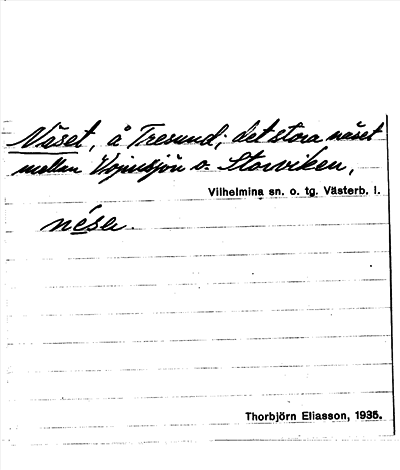 Näset, å Tresund; det stora näset
mellan Vojmsjön o. Storviken,
Vilhelmina sn. o. tg. Västerb. l.
nése.
Thorbjörn Eliasson, 1935.